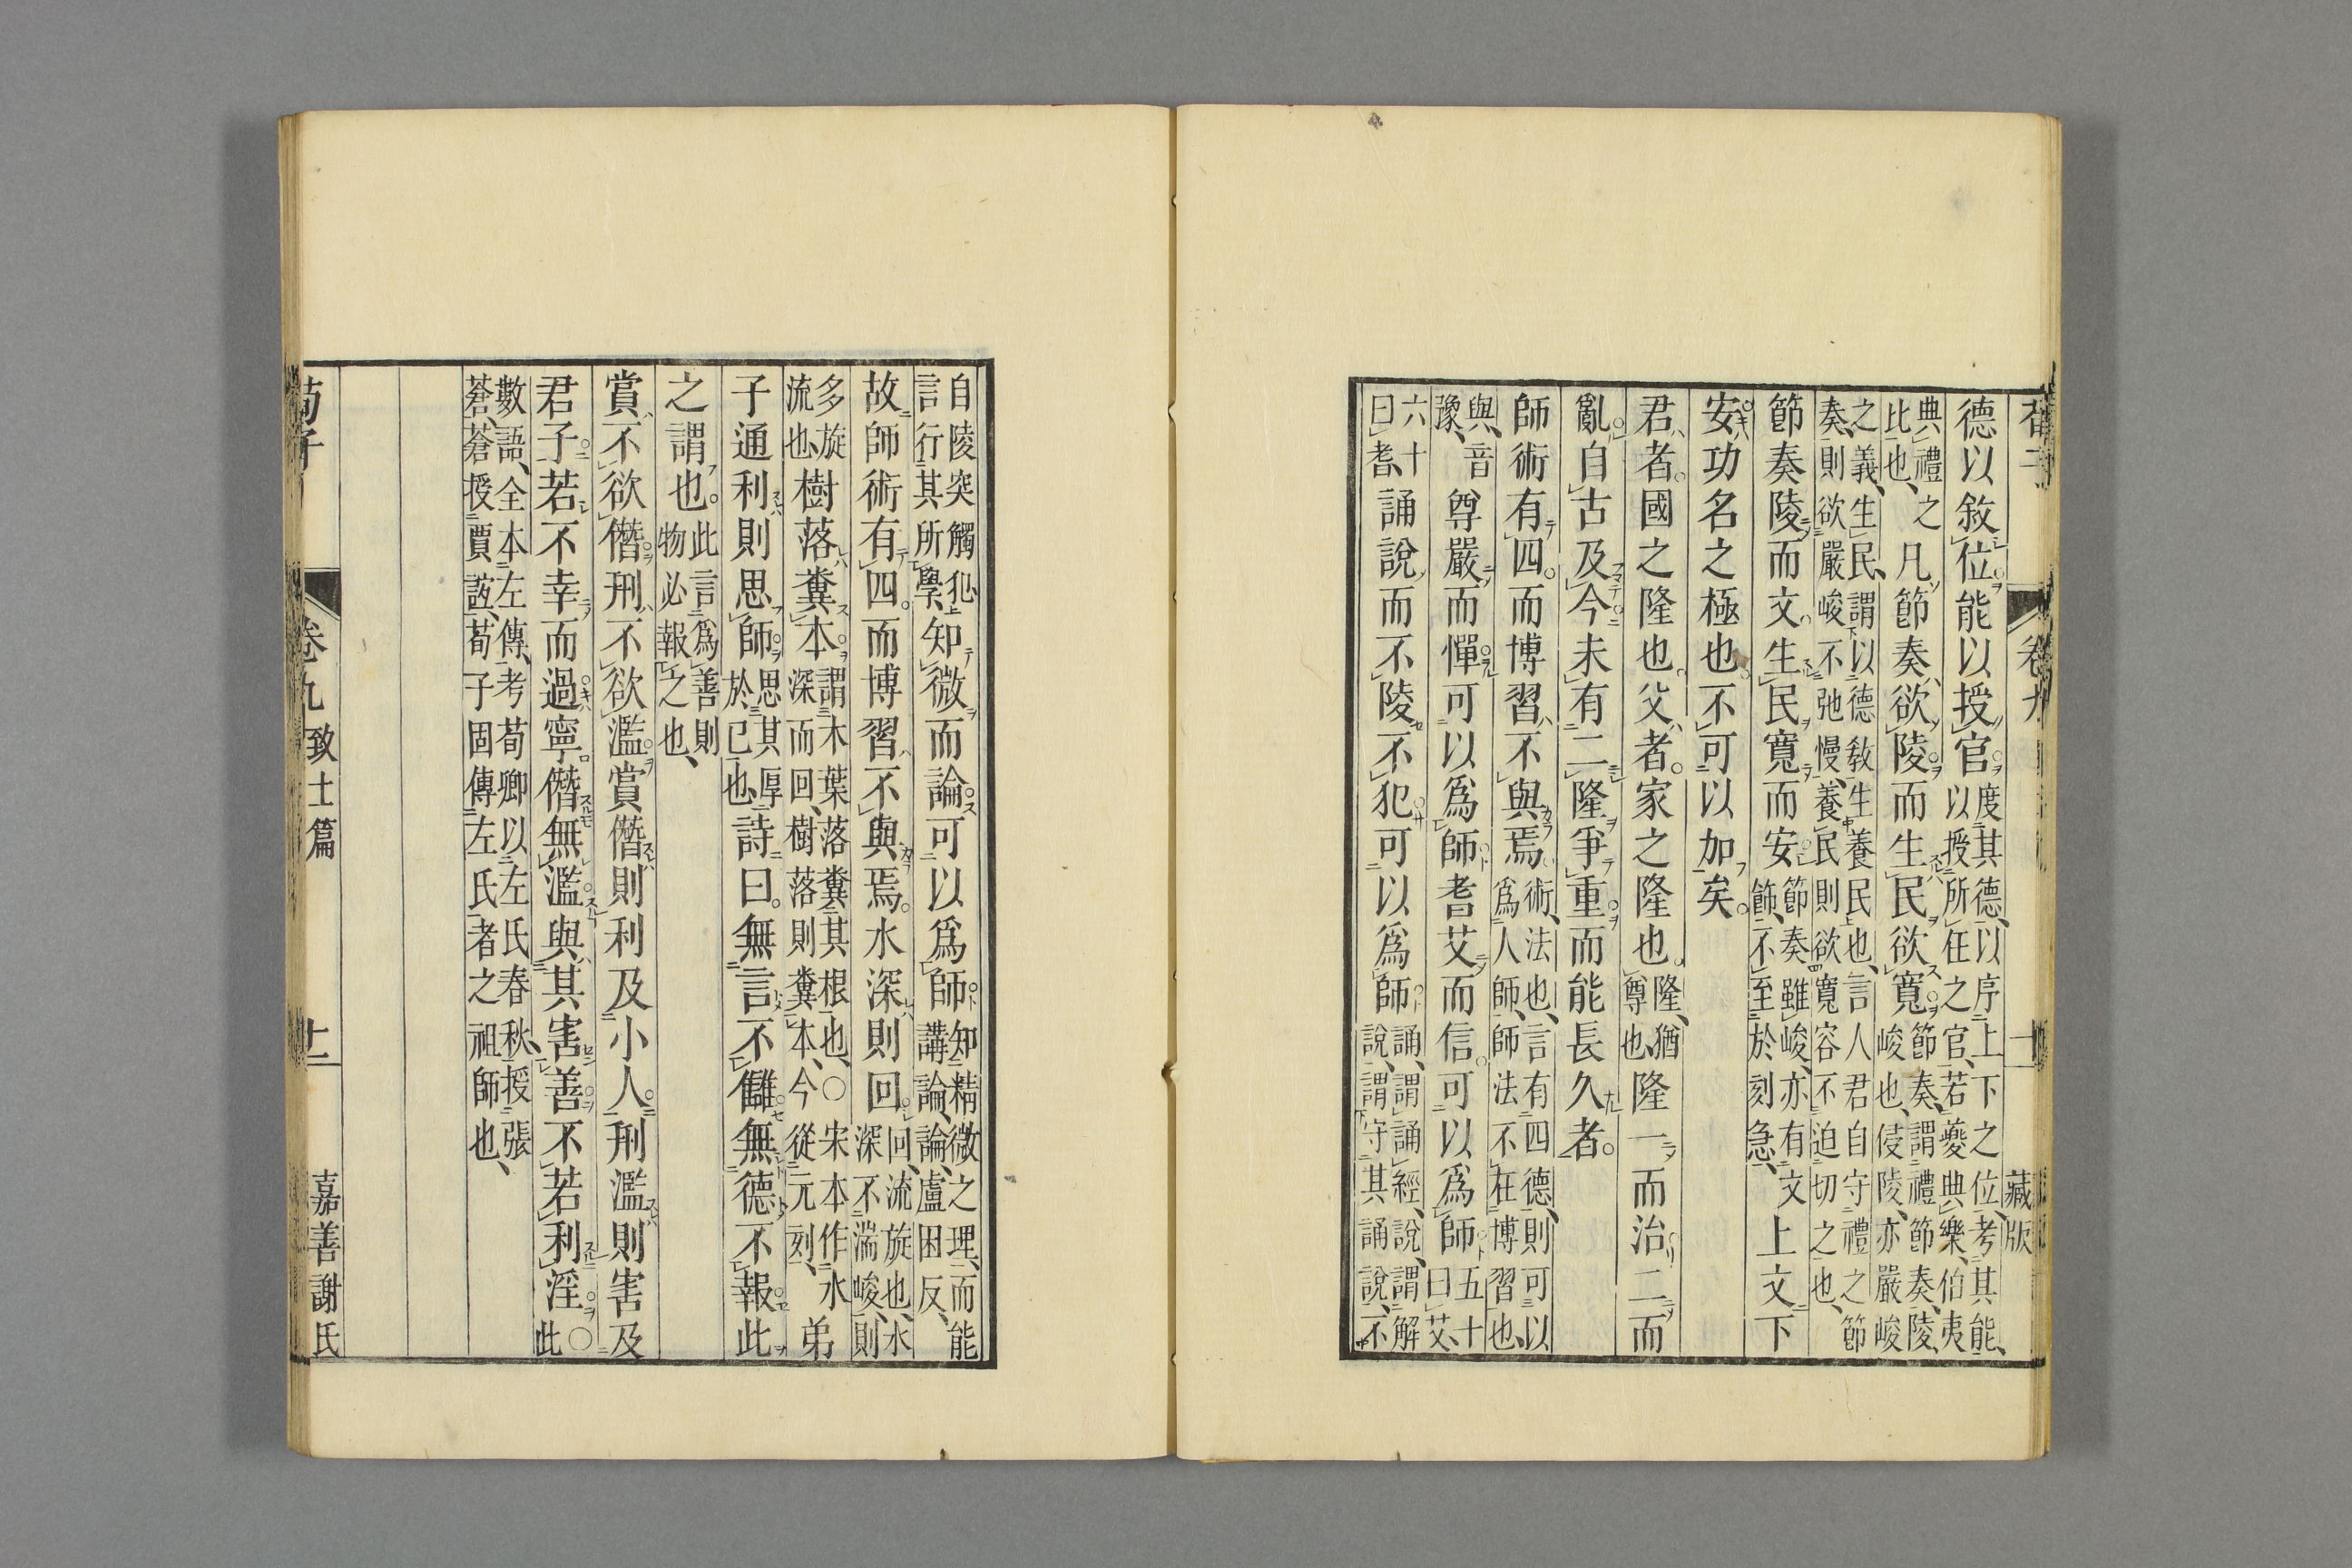 藏版
德以敘位能以授官度其德以序上下之位考其能以授所任之官若夔典樂伯夷
典禮之比也凡節奏欲陵而生民欲寬節奏謂禮節奏陵峻也侵陵亦嚴峻
之義生民謂以德敎生養民也言人君自守禮之節奏則欲嚴峻不弛慢養民則欲寬容不迫切之也
節奏陵而文生民寬而安節奏雖峻亦有文飾不至於刻急上文下
安功名之極也不可以加矣
君者國之隆也父者家之隆也隆猶尊也隆一而治二而
亂自古及今未有二隆爭重而能長久者
師術有四而博習不與焉術法也言有四德則可以爲人師師法不在博習也
與音豫尊嚴而憚可以爲師耆艾而信可以爲師五十曰艾
六十曰耆誦說而不陵不犯可以爲師誦謂誦經說謂解說謂守其誦說不
自陵突觸犯言行其所學知微而論可以爲師知精微之理而能講論論盧困反
故師術有四而博習不與焉水深則回回流旋也水深不湍峻則
多旋流也樹落糞本謂木葉落糞其根也○宋本作水深而回樹落則糞本今從元刻弟
子通利則思師思其厚於已也詩曰無言不讎無德不報此
之謂也此言爲善則物必報之也
賞不欲僭刑不欲濫賞僭則利及小人刑濫則害及
君子若不幸而過寧僭無濫與其害善不若利淫○此
數語全本左傳考荀卿以左氏春秋授張蒼蒼授賈誼荀子固傳左氏者之祖師也
荀子 卷九 致士篇 十二 嘉善謝氏